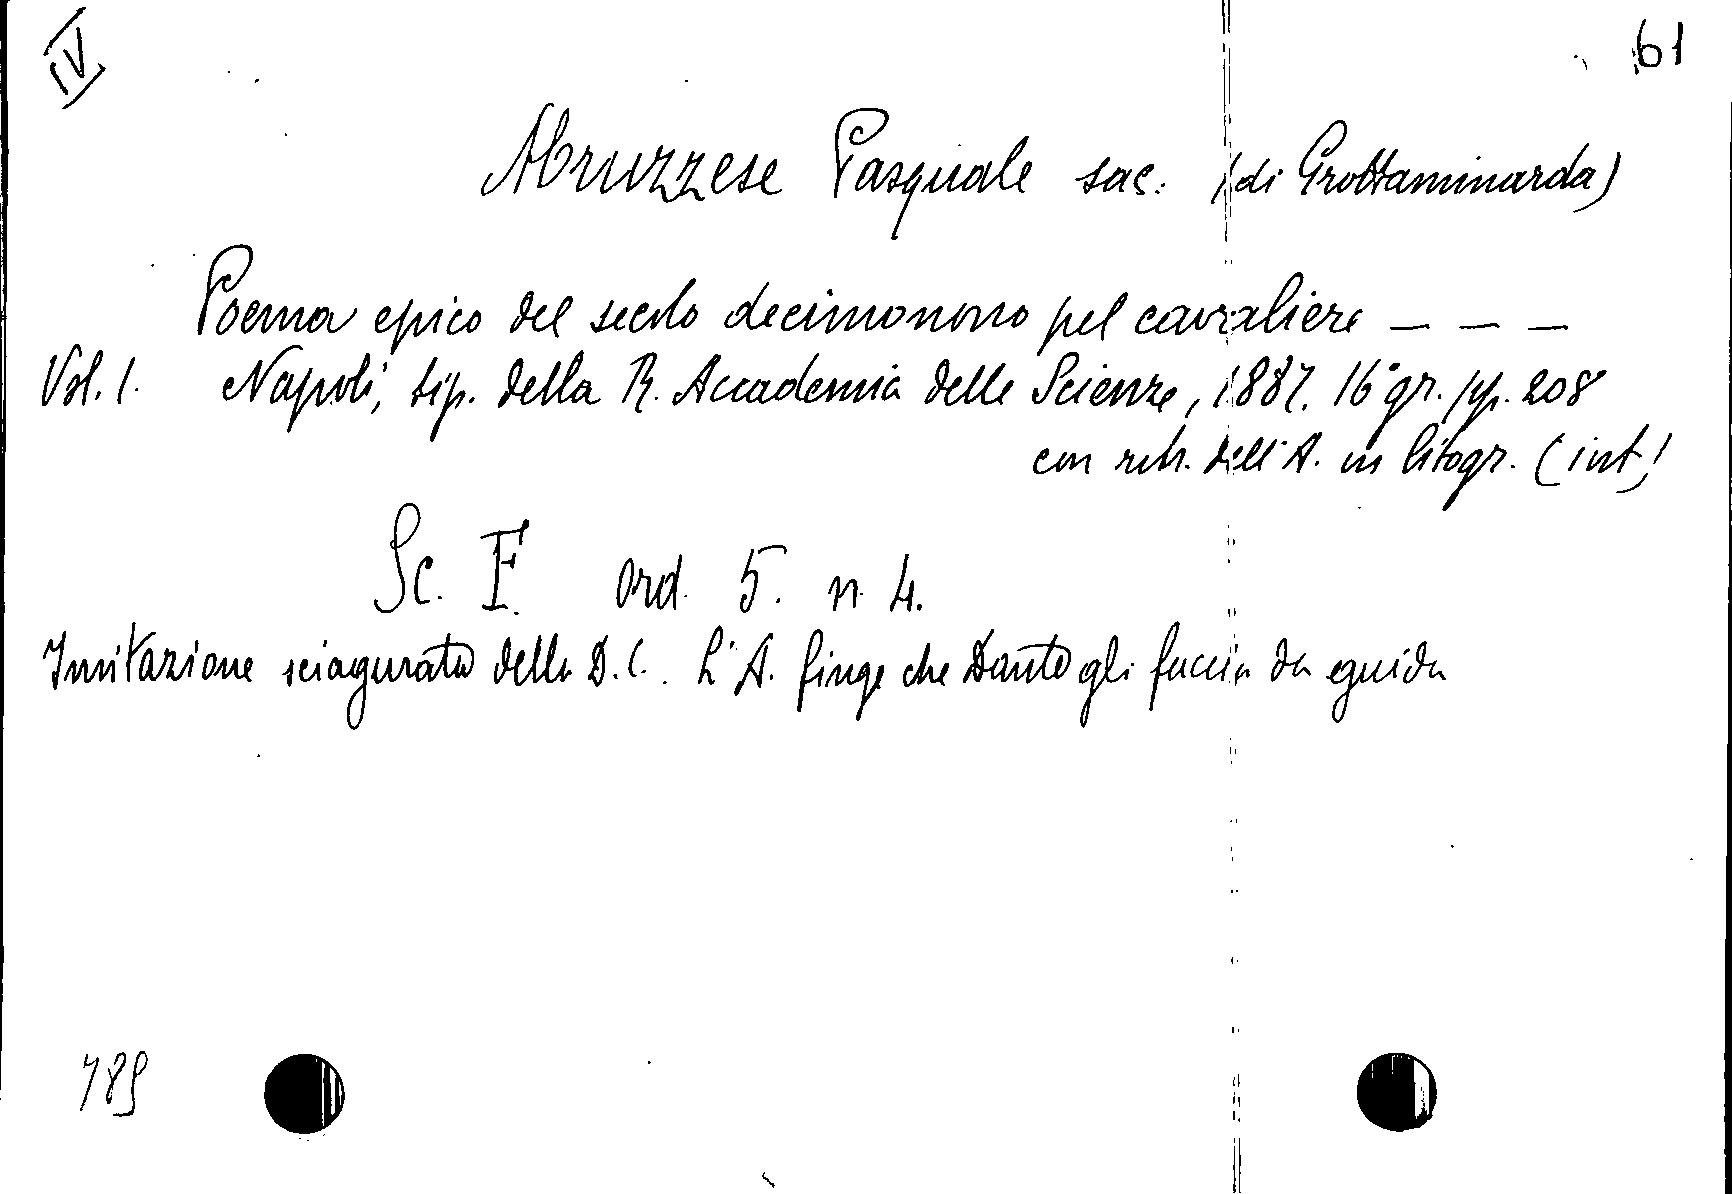 IV
61
Abruzzese Pasquale sac. (di Grottaminarda)
Poema epico del secolo decimonono pel cavaliere — — —
Vol. 1. Napoli, tip. della R. Accademia delle Scienze, 1887. 16° gr. pp. 208
con ritr. dell'A. in litogr. (int)
Sc. F. ord. 5. n. 4.
Imitazione sciagurata della D.C. L'A. finge che Dante gli faccia da guida
789